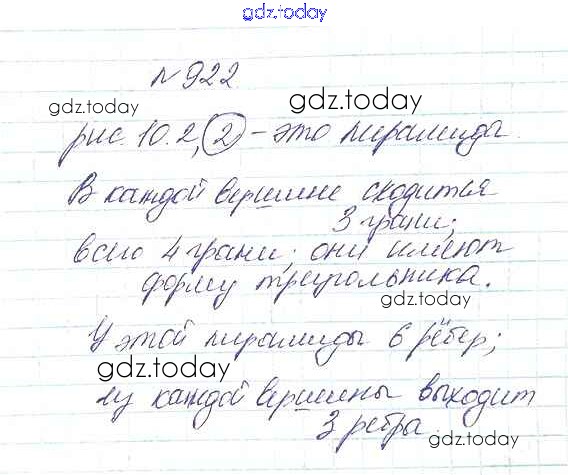 gdz.today
№ 922
gdz.today gdz.today
рис. 10.2, 2 - это пирамида.
В каждой вершине сходится
3 грани;
всего 4 грани; они имеют
форму треугольника.
gdz.today
У этой пирамиды 6 рёбер;
gdz.today
из каждой вершины выходит
3 ребра.
gdz.today